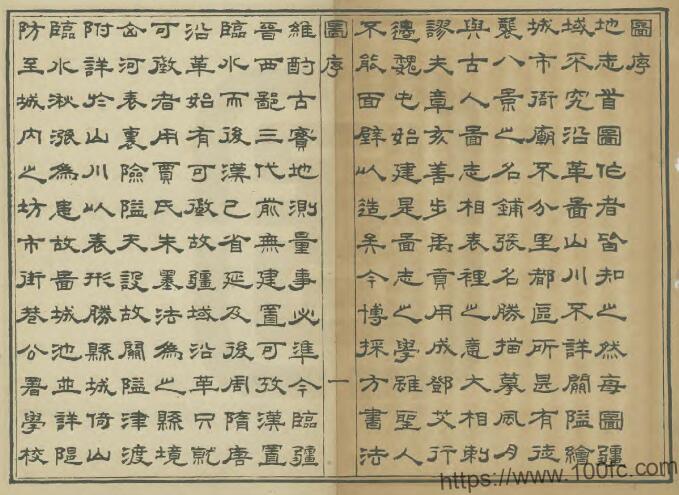 圖序
地志首圖作者皆知之然每圖疆
域不究沿革圖山川不詳關隘繪
城市衙廟不分里都區所甚有徒
襲八景之名鋪張名勝描摹風月
與古人圖志相表裡之意大相剌
謬夫章亥善步禹貢用成鄧艾行
邊魏屯始建是圖志之學雖聖人
不能面壁以造矣今博採方書法
圖序
一
維酌古實地測量事必準今臨疆
晉西鄙三代前無建置可攷漢置
臨水而後漢已省延及後周隋唐
沿革始有可徵故疆域沿革只就
可徵者用賈氏朱墨法為之縣境
河表裏險隘天設故關隘津渡
附詳於山川以表形勝縣城倚山
臨水湫漲為患故圖城池並詳隄
防至城內之坊市街巷公署學校
https://www.100fc.com